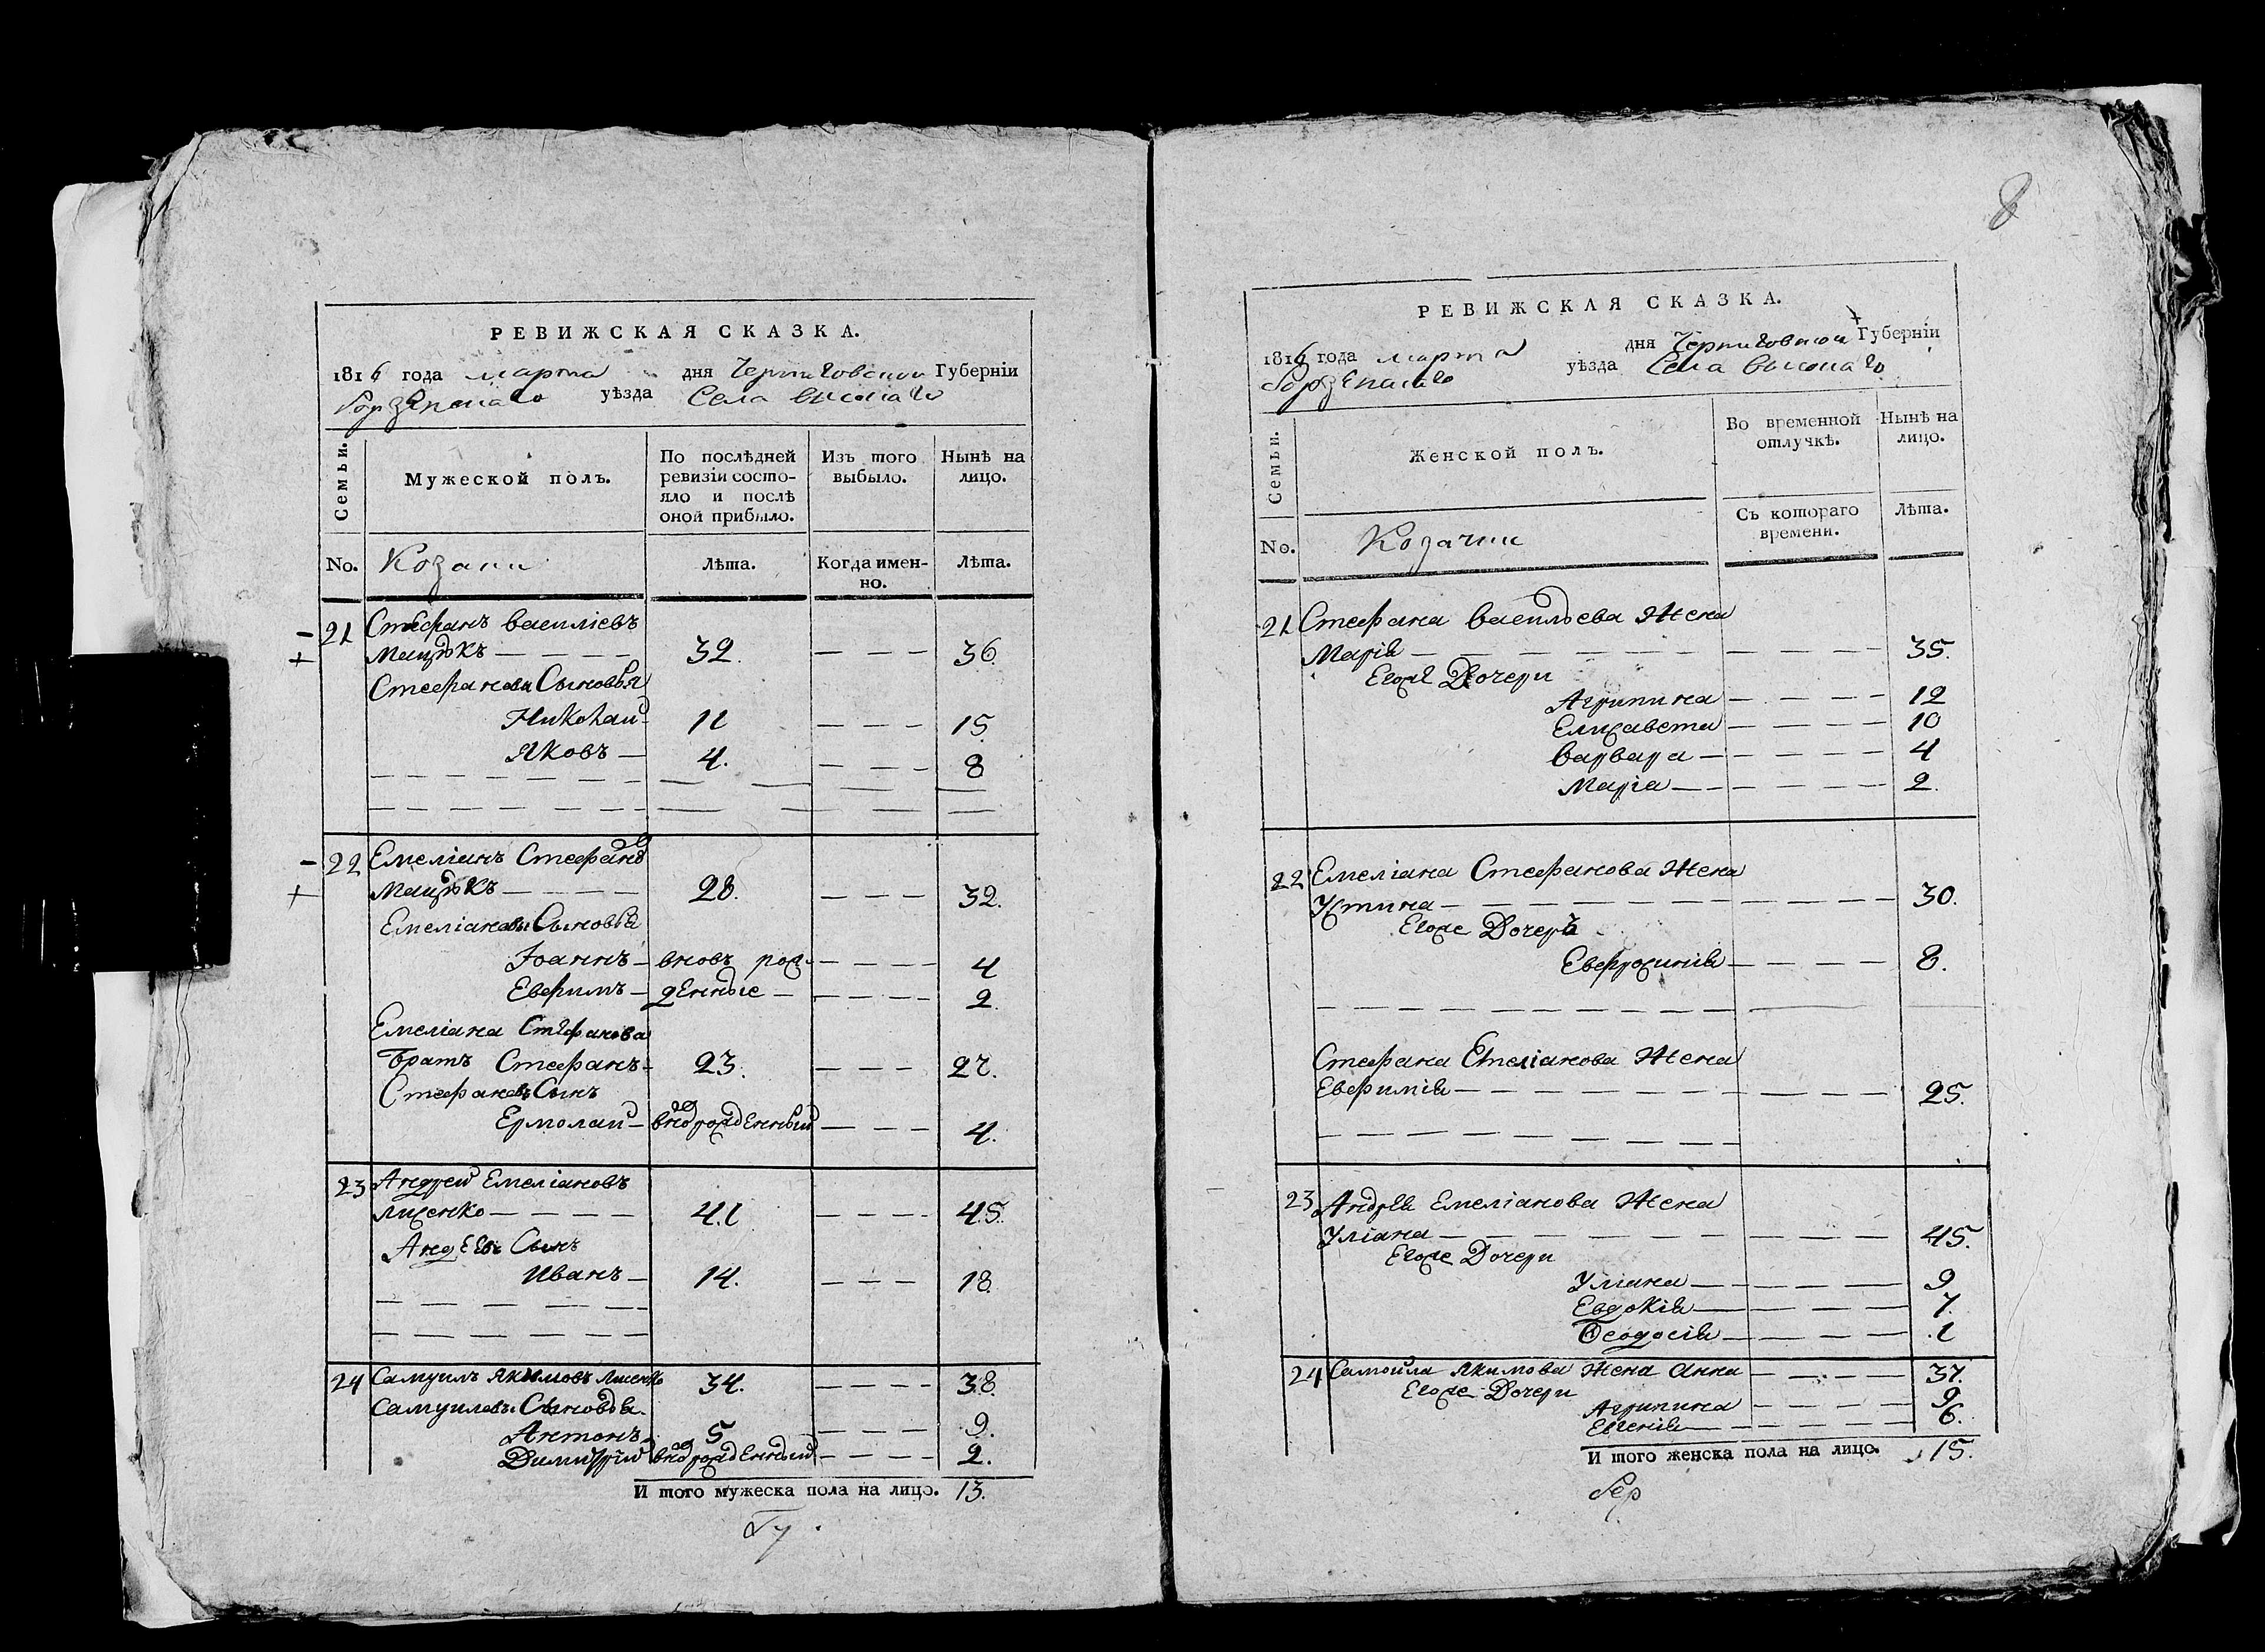 РЕВИЖСКАЯ СКАЗКА.
1816 года марта дня Черниговской Губерніи
уѣзда Села высокаго
Семьи.
Мужеской полъ.
По послѣдней ревизіи состояло и послѣ оной прибыло.
Изъ того выбыло.
Нынѣ на лицо.
No. Козаки Лѣта. Когда именно. Лѣта.
21 Стефанъ Василіевъ
Мацюкъ 32. 36
Стефановы Сыновья
Николай 11 15
Яковъ 4. 8
22 Емеліанъ Стефановъ
Мацюкъ 28. 32.
Емеліановы Сыновья
Іоаннъ вновь рож- 4
Евфимъ денные 2
Емеліана Стефанова
братъ Стефанъ 23. 27.
Стефановъ Сынъ
Ермолай вновь рожденный 4.
23 Андрей Емеліановъ
Лисенко 41 45.
Андреевъ Сынъ
Иванъ 14. 18.
24 Самуилъ Якимовъ Лисенко 34. 38.
Самуиловы Сыновья
Антонъ 5 9.
Димитрій вновь рожденный 2.
И того мужеска пола на лицо. 13.
8
РЕВИЖСКАЯ СКАЗКА.
1816 года марта дня Черниговской Губерніи
уѣзда Села высокаго
Семьи.
Женской полъ.
Во временной отлучкѣ.
Нынѣ на лицо.
Съ котораго времени.
Лѣта.
No. Козачки
21 Стефана Васильева Жена
Марія 35.
Егоже Дочери
Агрипина 12
Елисавета 10
Варвара 4
Марія 2.
22 Емеліана Стефанова Жена
Устина 30.
Егоже Дочерь
Евфросинія 8.
Стефана Емеліанова Жена
Евфимія 25.
23 Андрея Емеліанова Жена
Уліана 45.
Егоже Дочери
Уліана 9
Евдокія 7.
Ѳеодосія 1
24 Самойла Якимова Жена Анна 37.
Егоже Дочери
Агрипина 9
Евгенія 6.
И того женска пола на лицо. 15.